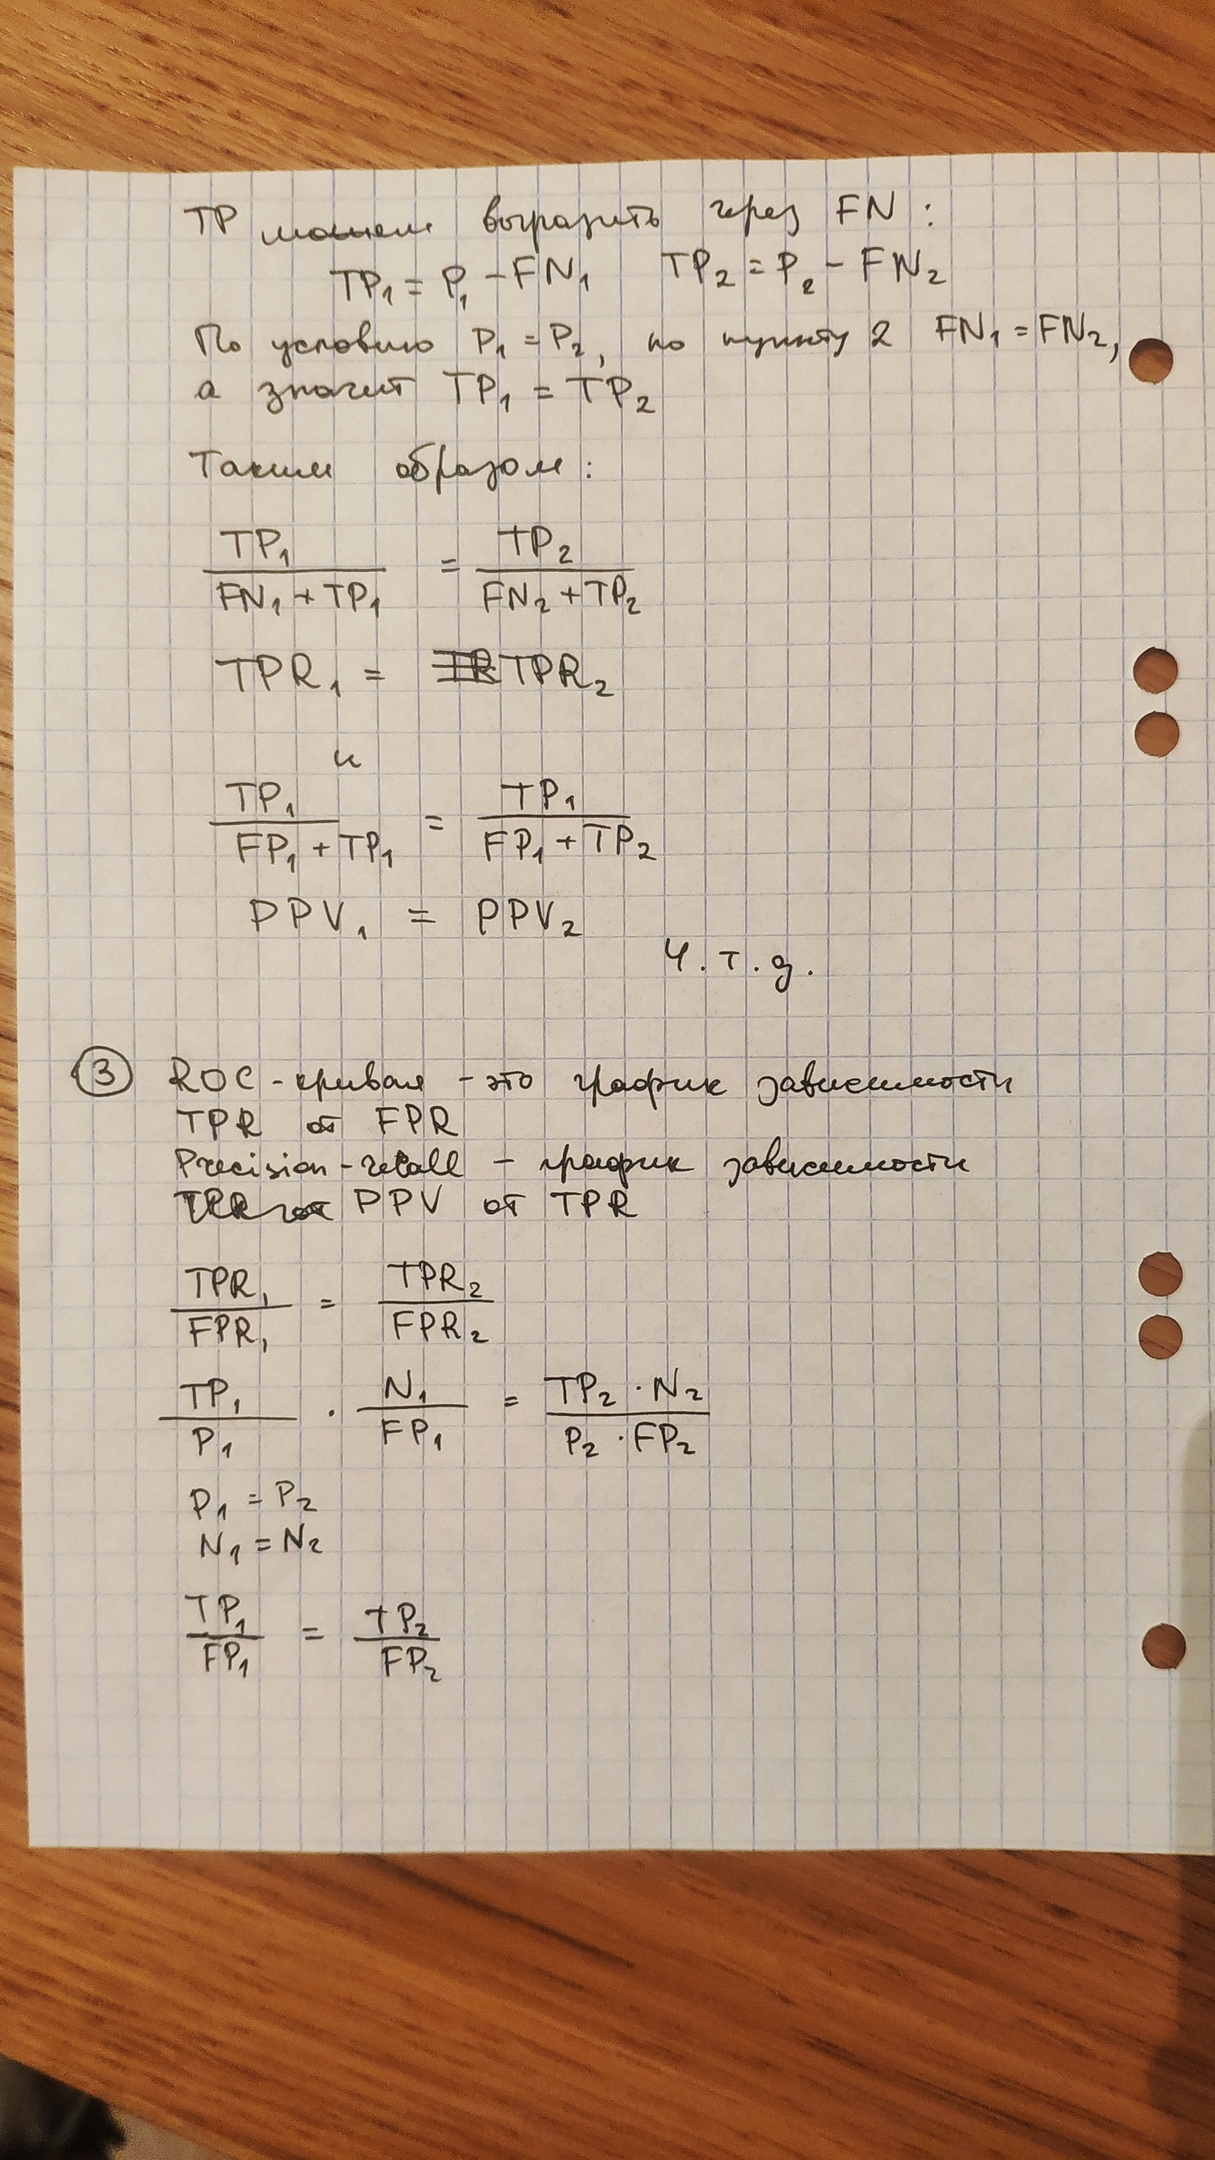 TP можем выразить через FN:
TP₁ = P₁ - FN₁ TP₂ = P₂ - FN₂
По условию P₁ = P₂, по пункту 2 FN₁ = FN₂,
а значит TP₁ = TP₂
Таким образом:
TP₁ / (FN₁ + TP₁) = TP₂ / (FN₂ + TP₂)
TPR₁ = TPR₂
и
TP₁ / (FP₁ + TP₁) = TP₁ / (FP₁ + TP₂)
PPV₁ = PPV₂
Ч.т.д.
③ ROC-кривая - это график зависимости
TPR от FPR
Precision-recall - график зависимости
PPV от TPR
TPR₁ / FPR₁ = TPR₂ / FPR₂
TP₁ / P₁ · N₁ / FP₁ = TP₂ · N₂ / P₂ · FP₂
P₁ = P₂
N₁ = N₂
TP₁ / FP₁ = TP₂ / FP₂